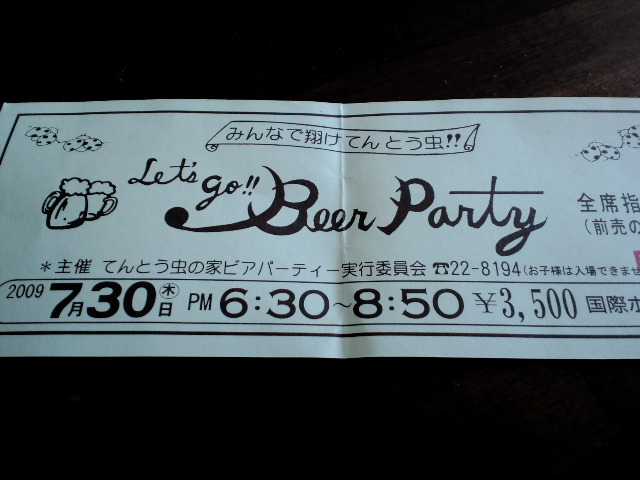 みんなで翔けてんとう虫!!
Let's go!! Beer Party
全席指
(前売の
*主催 てんとう虫の家ビアパーティー実行委員会 ☎22-8194(お子様は入場できませ
2009 7月30日 ㊍ PM 6:30~8:50 ¥3,500 国際ホ